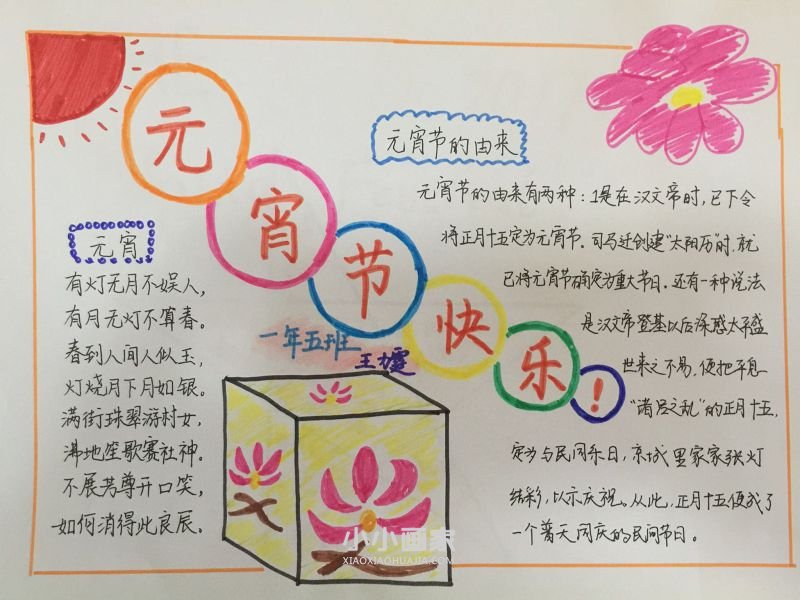 元宵节快乐!
一年五班
王
元宵
有灯无月不娱人,
有月无灯不算春。
春到人间人似玉,
灯烧月下月如银。
满街珠翠游村女,
沸地笙歌赛社神。
不展芳尊开口笑,
如何消得此良辰。
元宵节的由来
元宵节的由来有两种:1是在汉文帝时,已下令
将正月十五定为元宵节。司马迁创建"太阳历"时,就
已将元宵节确定为重大节日。还有一种说法
是汉文帝登基以后深感太平盛
世来之不易,便把平息
"诸吕之乱"的正月十五,
定为与民同乐日,京城里家家张灯
结彩,以示庆祝。从此,正月十五便成了
一个普天同庆的民间节日。
小小画家
XIAOXIAOHUAJIA.COM